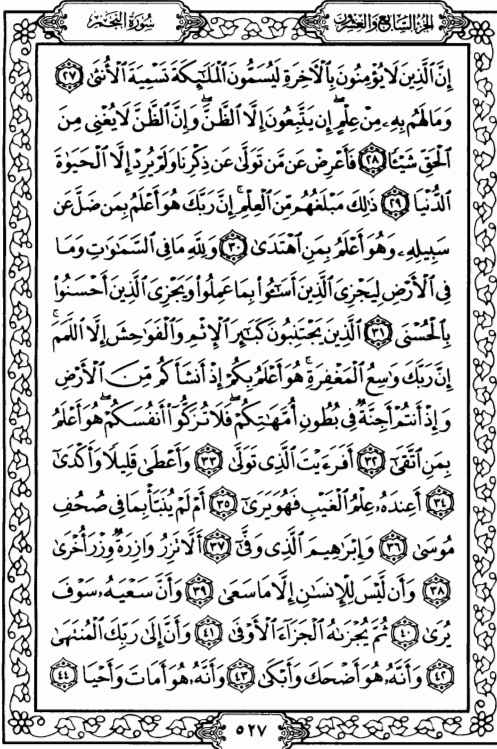 سُورَةُ النَّجْمِ
الجُزْءُ السَّابِعُ وَالْعِشْرُونَ
إِنَّ ٱلَّذِينَ لَا يُؤْمِنُونَ بِٱلْأَخِرَةِ لَيُسَمُّونَ ٱلْمَلَٰٓئِكَةَ تَسْمِيَةَ ٱلْأُنثَىٰ ٢٧
وَمَا لَهُم بِهِۦ مِنْ عِلْمٍ ۖ إِن يَتَّبِعُونَ إِلَّا ٱلظَّنَّ ۖ وَإِنَّ ٱلظَّنَّ لَا يُغْنِى مِنَ
ٱلْحَقِّ شَيْـًٔا ٢٨ فَأَعْرِضْ عَن مَّن تَوَلَّىٰ عَن ذِكْرِنَا وَلَمْ يُرِدْ إِلَّا ٱلْحَيَوٰةَ
ٱلدُّنْيَا ٢٩ ذَٰلِكَ مَبْلَغُهُم مِّنَ ٱلْعِلْمِ ۚ إِنَّ رَبَّكَ هُوَ أَعْلَمُ بِمَن ضَلَّ عَن
سَبِيلِهِۦ وَهُوَ أَعْلَمُ بِمَنِ ٱهْتَدَىٰ ٣٠ وَلِلَّهِ مَا فِى ٱلسَّمَٰوَٰتِ وَمَا
فِى ٱلْأَرْضِ لِيَجْزِىَ ٱلَّذِينَ أَسَٰٓـُٔوا۟ بِمَا عَمِلُوا۟ وَيَجْزِىَ ٱلَّذِينَ أَحْسَنُوا۟
بِٱلْحُسْنَى ٣١ ٱلَّذِينَ يَجْتَنِبُونَ كَبَٰٓئِرَ ٱلْإِثْمِ وَٱلْفَوَٰحِشَ إِلَّا ٱللَّمَمَ ۚ
إِنَّ رَبَّكَ وَٰسِعُ ٱلْمَغْفِرَةِ ۚ هُوَ أَعْلَمُ بِكُمْ إِذْ أَنشَأَكُم مِّنَ ٱلْأَرْضِ
وَإِذْ أَنتُمْ أَجِنَّةٌ فِى بُطُونِ أُمَّهَٰتِكُمْ ۖ فَلَا تُزَكُّوٓا۟ أَنفُسَكُمْ ۖ هُوَ أَعْلَمُ
بِمَنِ ٱتَّقَىٰٓ ٣٢ أَفَرَءَيْتَ ٱلَّذِى تَوَلَّىٰ ٣٣ وَأَعْطَىٰ قَلِيلًا وَأَكْدَىٰٓ
٣٤ أَعِندَهُۥ عِلْمُ ٱلْغَيْبِ فَهُوَ يَرَىٰٓ ٣٥ أَمْ لَمْ يُنَبَّأْ بِمَا فِى صُحُفِ
مُوسَىٰ ٣٦ وَإِبْرَٰهِيمَ ٱلَّذِى وَفَّىٰٓ ٣٧ أَلَّا تَزِرُ وَازِرَةٌ وِزْرَ أُخْرَىٰ
٣٨ وَأَن لَّيْسَ لِلْإِنسَٰنِ إِلَّا مَا سَعَىٰ ٣٩ وَأَنَّ سَعْيَهُۥ سَوْفَ
يُرَىٰ ٤٠ ثُمَّ يُجْزَىٰهُ ٱلْجَزَآءَ ٱلْأَوْفَىٰ ٤١ وَأَنَّ إِلَىٰ رَبِّكَ ٱلْمُنتَهَىٰ
٤٢ وَأَنَّهُۥ هُوَ أَضْحَكَ وَأَبْكَىٰ ٤٣ وَأَنَّهُۥ هُوَ أَمَاتَ وَأَحْيَا ٤٤
٥٢٧